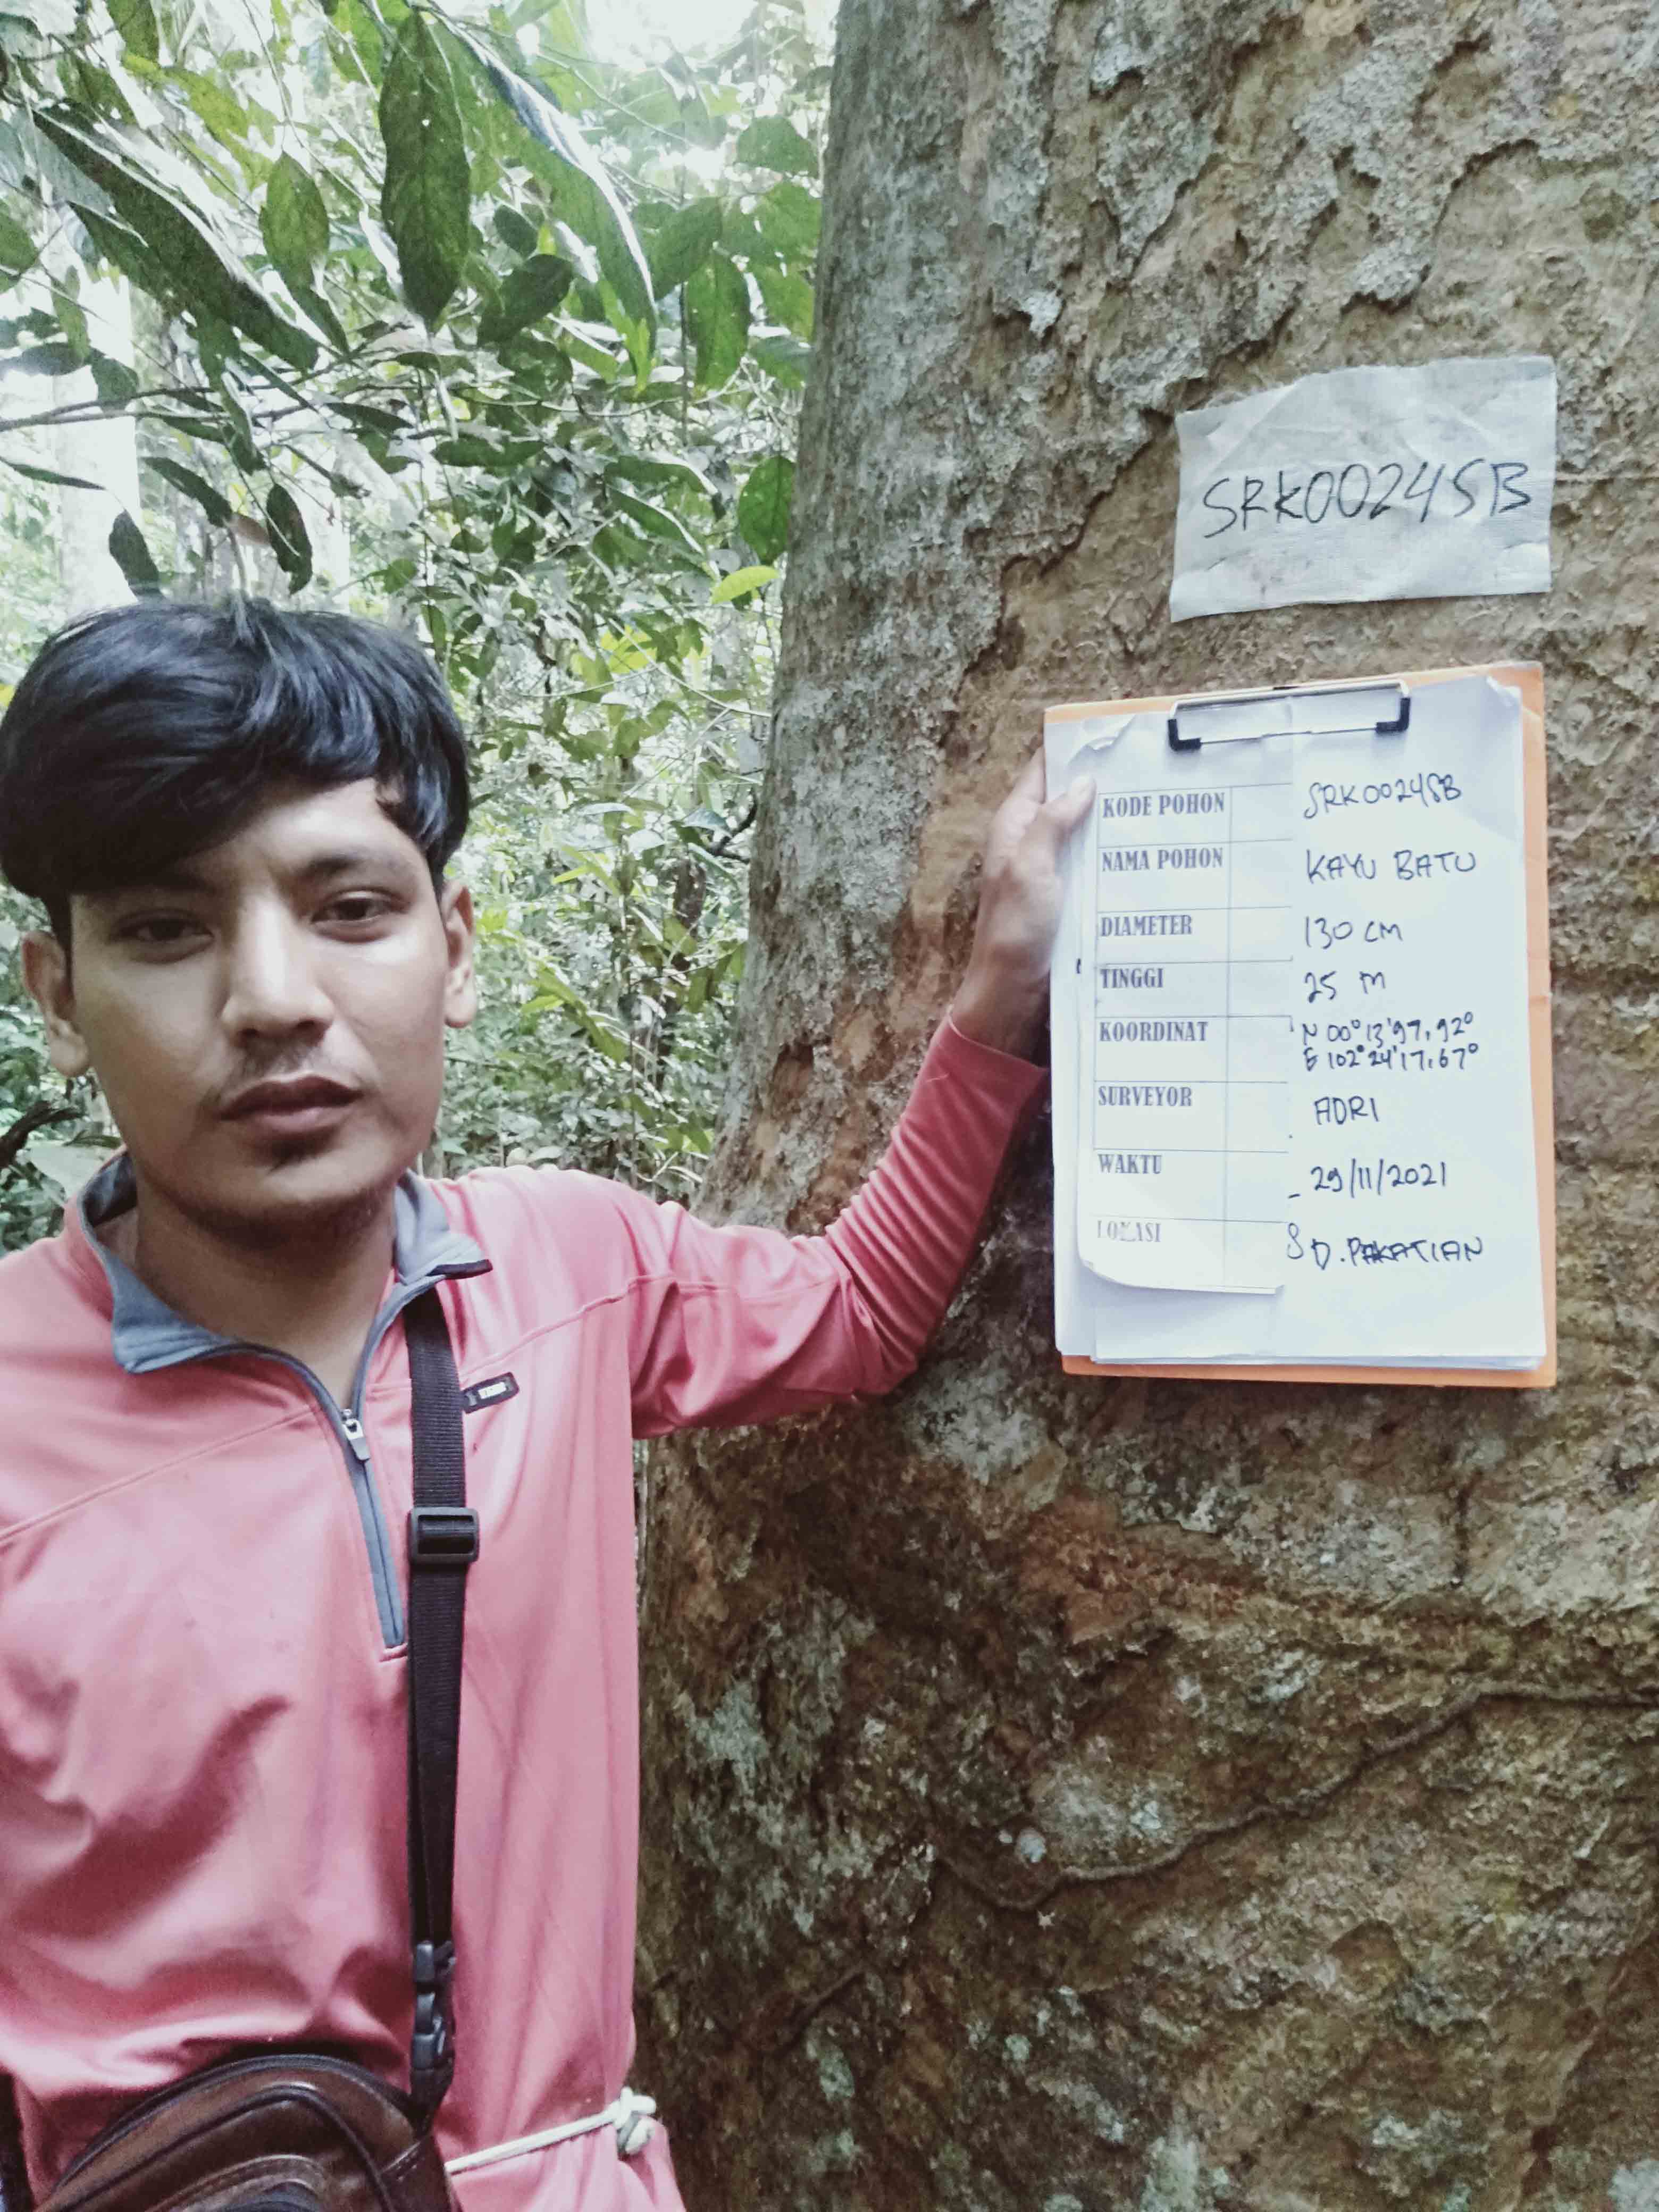 SRK0024SB
KODE POHON SRK0024SB
NAMA POHON KAYU BATU
DIAMETER 130 CM
TINGGI 25 M
KOORDINAT N 00° 13' 97, 92°
E 102° 24' 17, 67°
SURVEYOR ADRI
WAKTU 29/11/2021
LOKASI SD. PAKATIAN